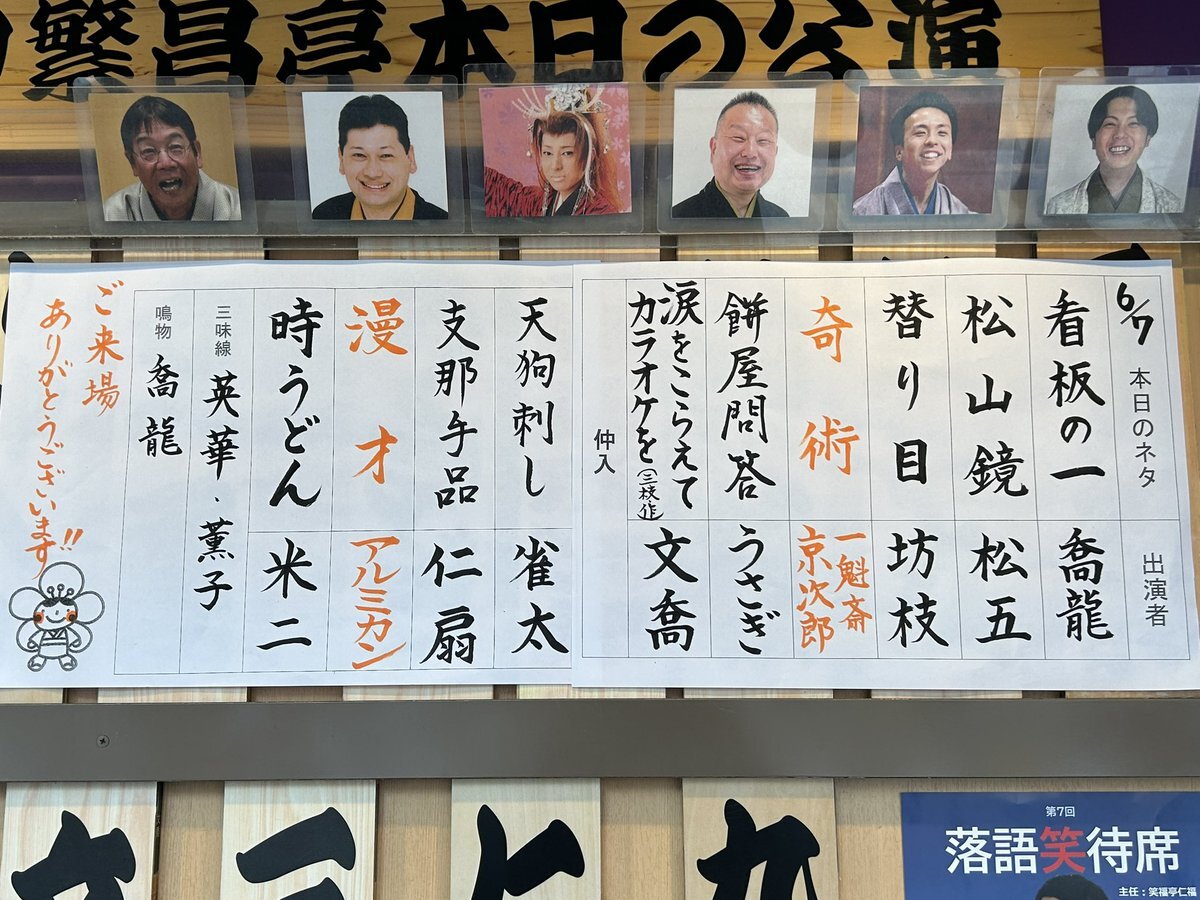 繁昌亭本日の公演
6/7 本日のネタ 出演者
看板の一 喬龍
松山鏡 松五
替り目 坊枝
奇術 一魁斎 京次郎
餅屋問答 うさぎ
涙をこらえて
カラオケを(三枝・作) 文喬
仲入
天狗刺し 雀太
支那手品 仁扇
漫才 アルミカン
時うどん 米二
三味線 英華・薫子
鳴物 喬龍
ご来場
ありがとうございます!!
第7回
落語笑待席
主任:笑福亭仁福